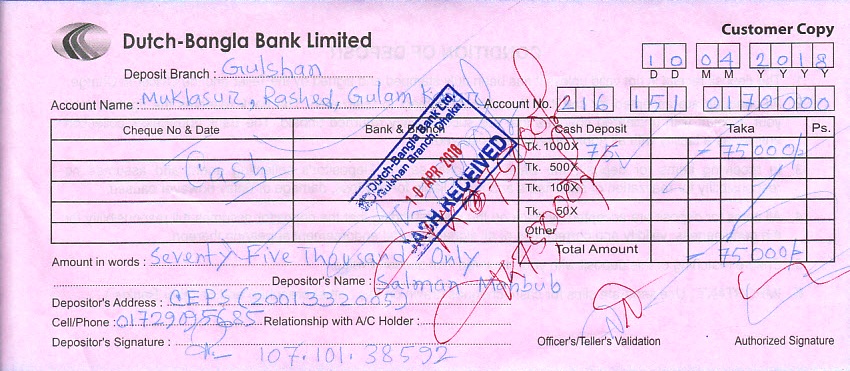 Customer Copy
Dutch-Bangla Bank Limited
10 04 2018
D D M M Y Y Y Y
Deposit Branch : Gulshan
Account Name : Muklasur, Rashed, Gulam Account No. 216 151 0170000
Cheque No & Date Bank & Branch Cash Deposit Taka Ps.
Cash Tk. 1000X 75 - 75000/-
Tk. 500X
Tk. 100X
Tk. 50X
Other
Total Amount - 75000/-
Dutch-Bangla Bank Ltd.
Gulshan Branch, Dhaka.
10 APR 2018
CASH RECEIVED
Tk 75000/-
Amount in words : Seventy Five Thousand Only
Depositor's Name : Salman Mahbub
Depositor's Address : CEPS (2001332005)
Cell/Phone : Relationship with A/C Holder :
Depositor's Signature :
107.101.38592
Officer's/Teller's Validation Authorized Signature